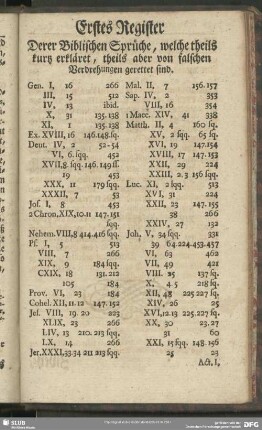 Erstes Register
Derer Biblischen Sprüche, welche theils
kurtz erkläret, theils aber von falschen
Verdrehungen gerettet sind.
Gen. I, 16 266
III, 15 512
IV, 13 ibid.
X, 31 135.138
XI, 1 135.138
Ex. XVIII, 16 146.148.sq.
Deut. IV, 2 52-54
VI, 6. sqq. 452
XVII,8.sqq. 146.149.ss.
19 453
XXX, 11 179 sqq.
XXXII, 7 53
Jos. I, 8 453
2 Chron, XIX, 10.11 147.151
sqq.
Nehem. VIII, 8 414-416 sqq.
Ps. I, 5 513
VIII, 7 266
XIX, 9 184 sqq.
CXIX, 18 131.212
105 184
Prov. VI, 23 184
Cohel. XII, 11.12 147.152
Jes. VIII, 19.20 223
XLIX, 23 266
LIV, 13 210.213 sqq.
LX, 14 266
Jer. XXXI,33.34 211 213 sqq.
Mal. II, 7 156.157
Sap. IV, 2 353
VIII, 16 354
1 Macc. XIV, 41 338
Matth. II, 4 160 sq.
XV, 2 sqq. 65 sq.
XVI, 19 147.154
XVIII, 17 147.153
XXII, 29 224
XXIII, 2.3 156 sqq.
Luc. XI, 2 sqq. 513
XVI, 31 224
XXII, 23 147.155
38 266
XXIV, 27 132
Joh, V, 34 sqq. 331
39 64.224-453.457
VI, 63 462
VII, 49 421
VIII. 25 137 sq.
X, 4.5 218 sq.
XII, 48 225 227 sq.
XIV, 26 25
XVI, 12.13 225.227 sq.
XX, 30 23.27
31 60
XXI, 15 sqq. 148.196
25 23
Act. I,
SLUB
DFG